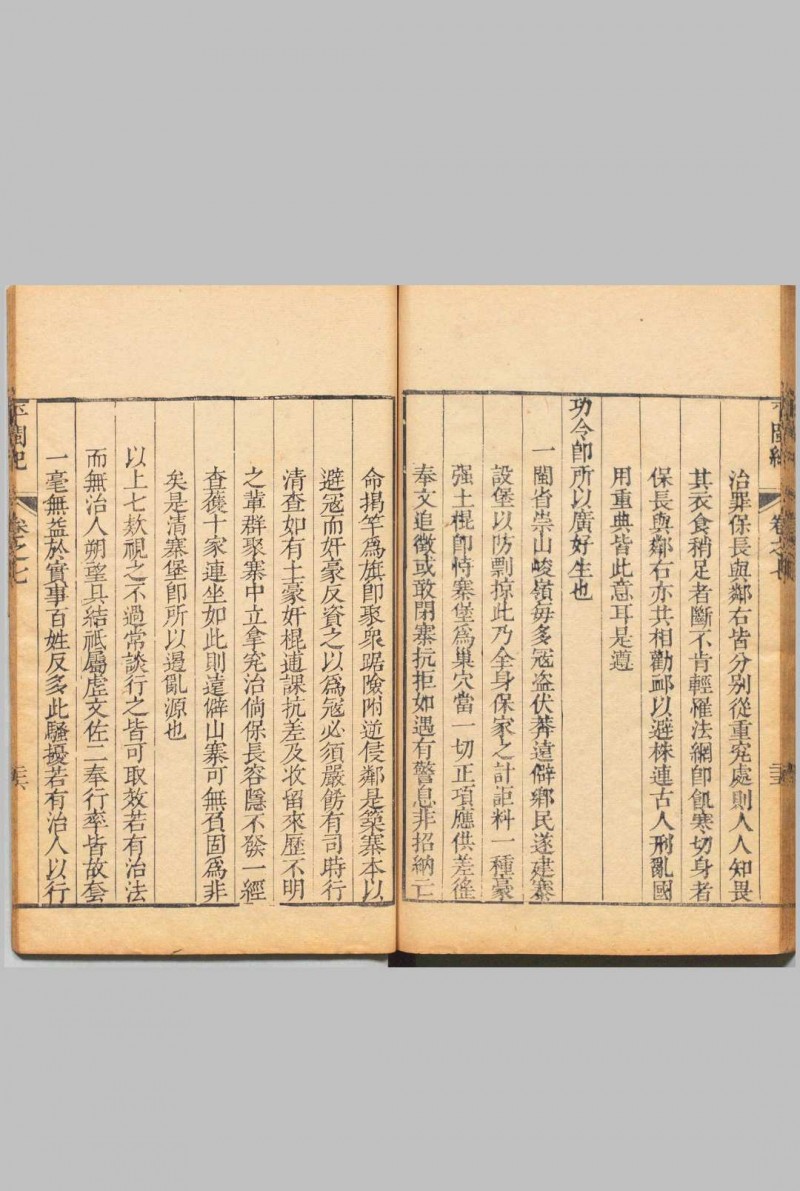 治罪保長與鄰右皆分别從重究處則人人知畏
其衣食稍足者斷不肯輕罹法網卽飢寒切身者
保長與鄰右亦共相勸邺以避株連古人刑亂國
用重典皆此意耳是遵
功令卽所以廣好生也
一閩省崇山峻嶺每多冦盗伏莽遠僻鄉民遂建寨
設堡以防剽掠此乃全身保家之計詎料一種豪
强土棍卽恃寨堡爲巢穴當一切正項應供差徭
奉文追徵或敢閉寨抗拒如遇有警息非招納亡
命揭竿爲旗卽聚衆踞險附逆侵鄰是築寨本以
避冦而奸豪反資之以爲冦必須嚴飭有司時行
清查如有土豪奸棍逋課抗差及收留來歷不明
之輩群聚寨中立拿究治倘保長容隱不發一經
查獲十家連坐如此則遠僻山寨可無負固爲非
矣是清寨堡卽所以遏亂源也
以上七欵視之不過常談行之皆可取效若有治法
而無治人朔望具結祇屬虛文佐二奉行率皆故套
一毫無益於實事百姓反多此騷擾若有治人以行
平閩紀
卷之七